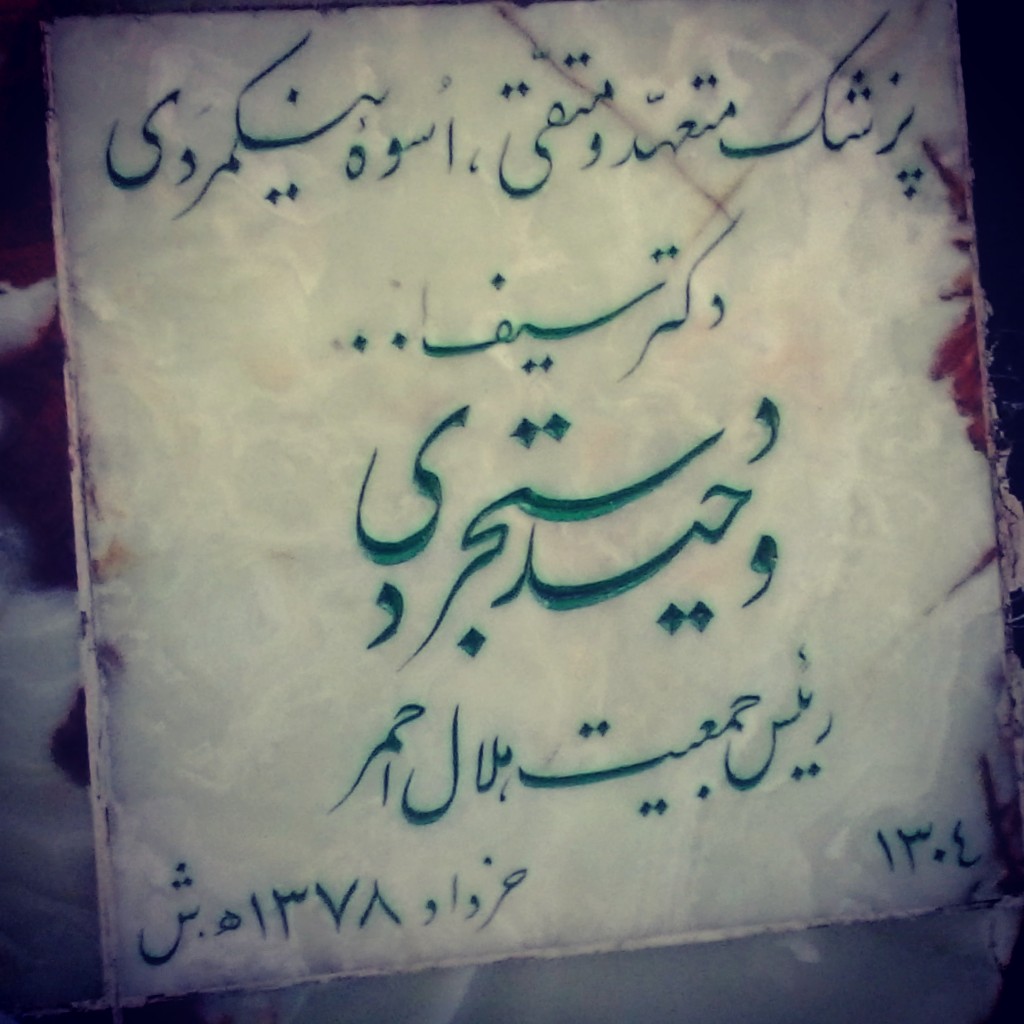 پزشک متعهّد و متقّی ، اُسوهٔ نیکمردی
دکتر سیف ا..
وحید دستجردی
رئیس جمعیت هلال احمر
۱۳۰٤
خرداد ۱۳۷۸ ه.ش